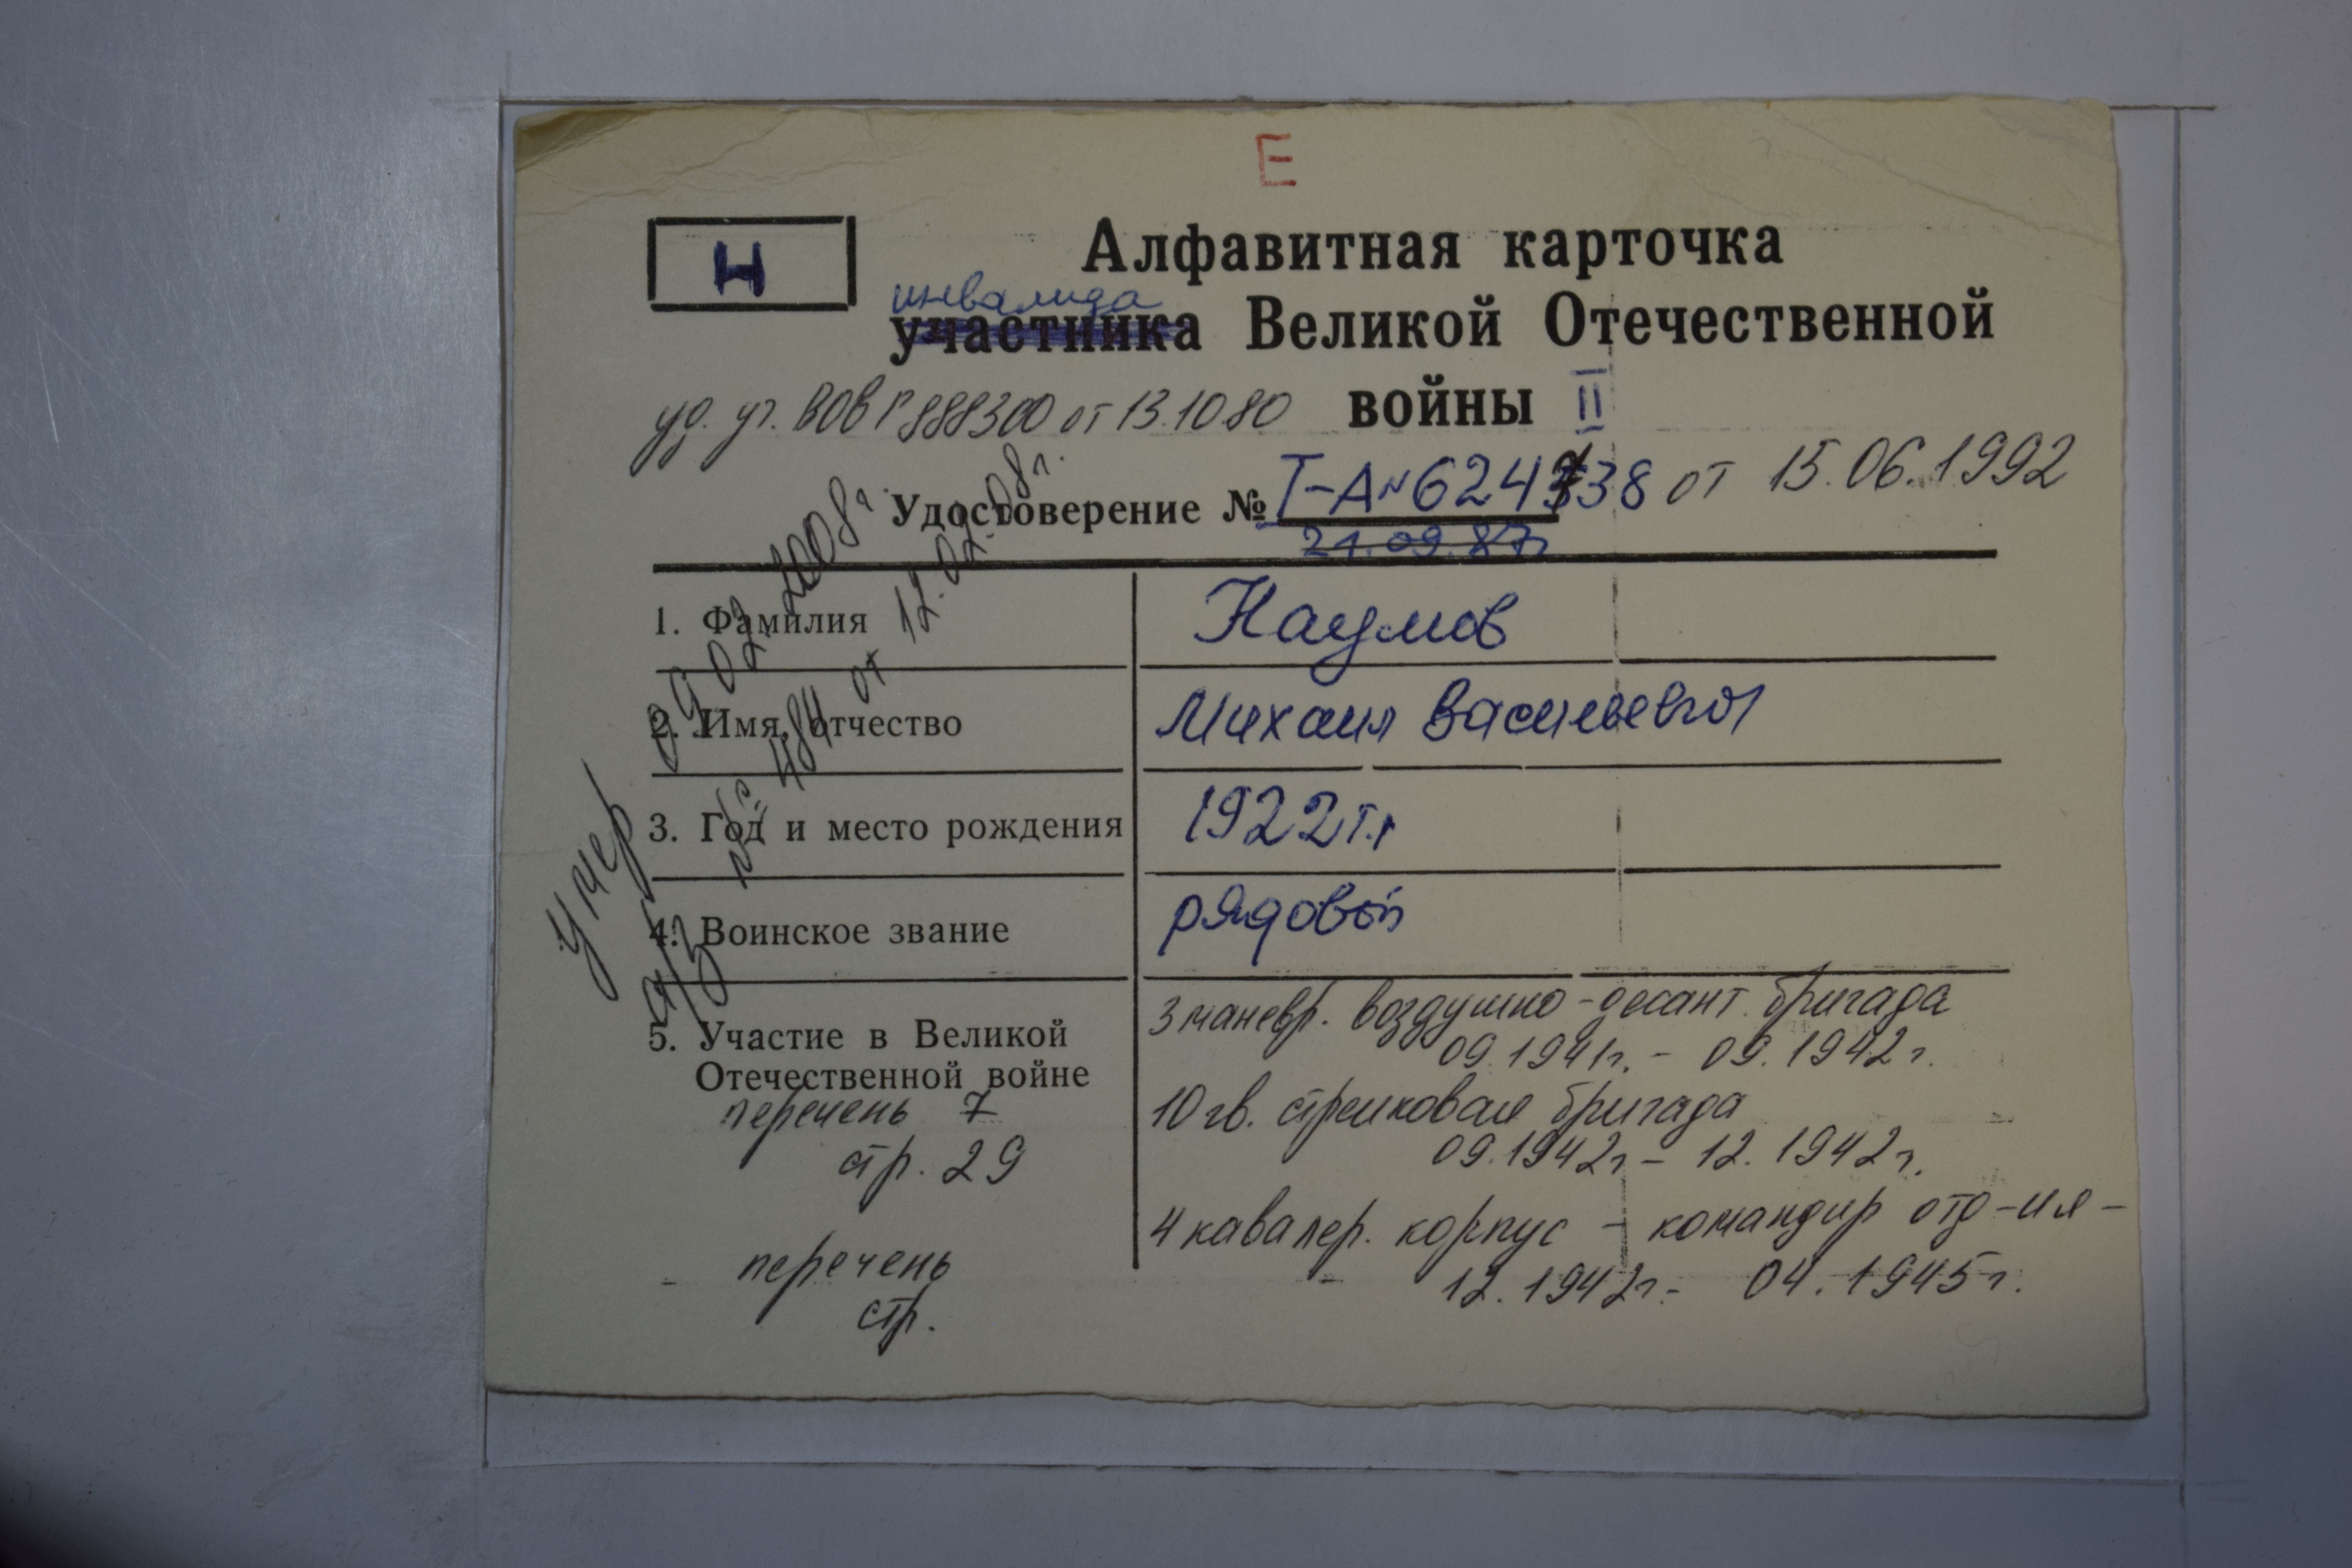 Е
Н
Алфавитная карточка
инвалида
участника Великой Отечественной
войны II
уд. уч. ВОВ Г 888300 от 13.10.80
Удостоверение № Т-А № 624738 от 15.06.1992
21.09.87г
1. Фамилия Наумов
2. Имя, отчество Михаил Васильевич
3. Год и место рождения 1922 г.р
4. Воинское звание рядовой
5. Участие в Великой
Отечественной войне
3 маневр. воздушно-десант. бригада
09.1941г. - 09.1942г.
10 гв. стрелковая бригада
09.1942г - 12.1942г.
4 кавалер. корпус - командир отд-ия -
12.1942г. - 04.1945г.
перечень 7
стр. 29
перечень
стр.
Умер 09.02.2008г.
а/з № 484 от 12.02.08г.